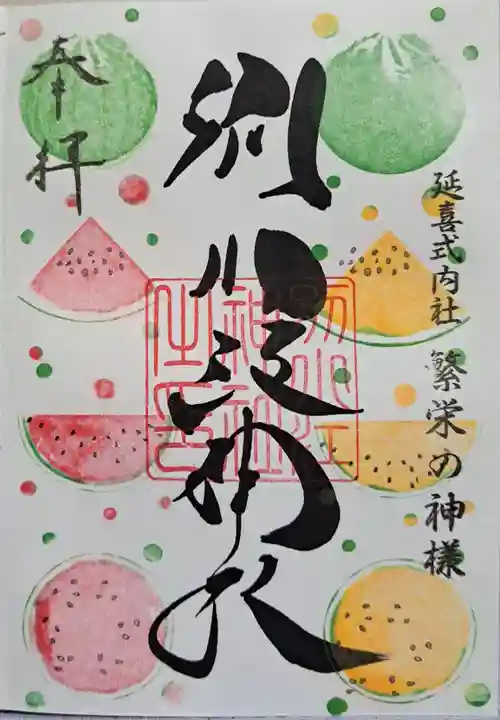 延喜式内社 繁栄の神様
別小江神社
奉拝
別小江
神社
之印